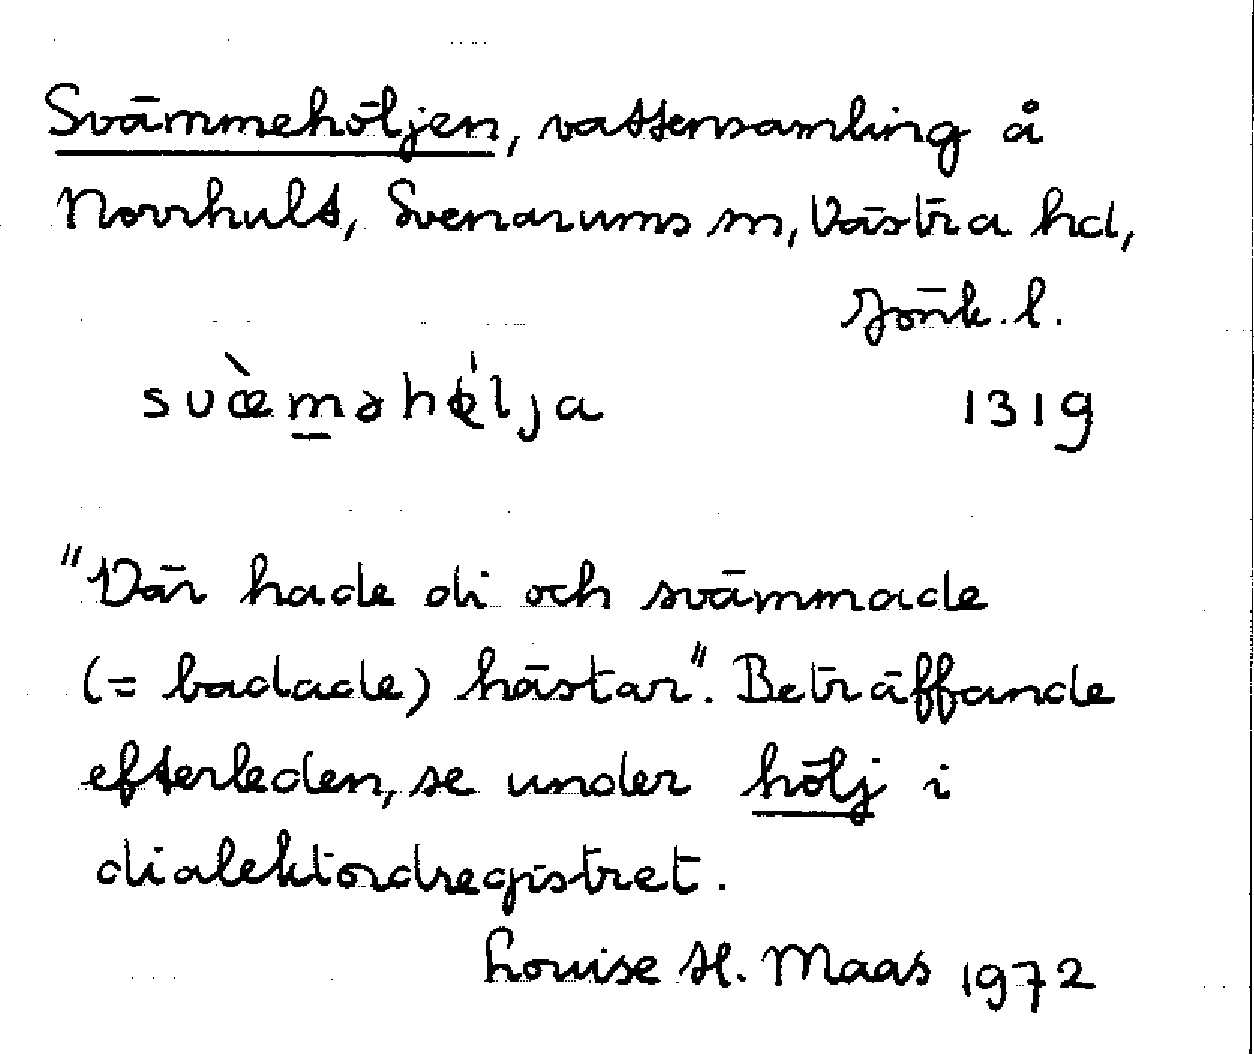 Svämmehöljen, vattensamling å
Norrhult, Svenarums sn, Västra hd,
Jönk. l.
svæ̀məhǿlja 1319
"Där hade di och svämmade
(= badade) hästar". Beträffande
efterleden, se under hölj i
dialektordregistret.
Louise H. Maas 1972